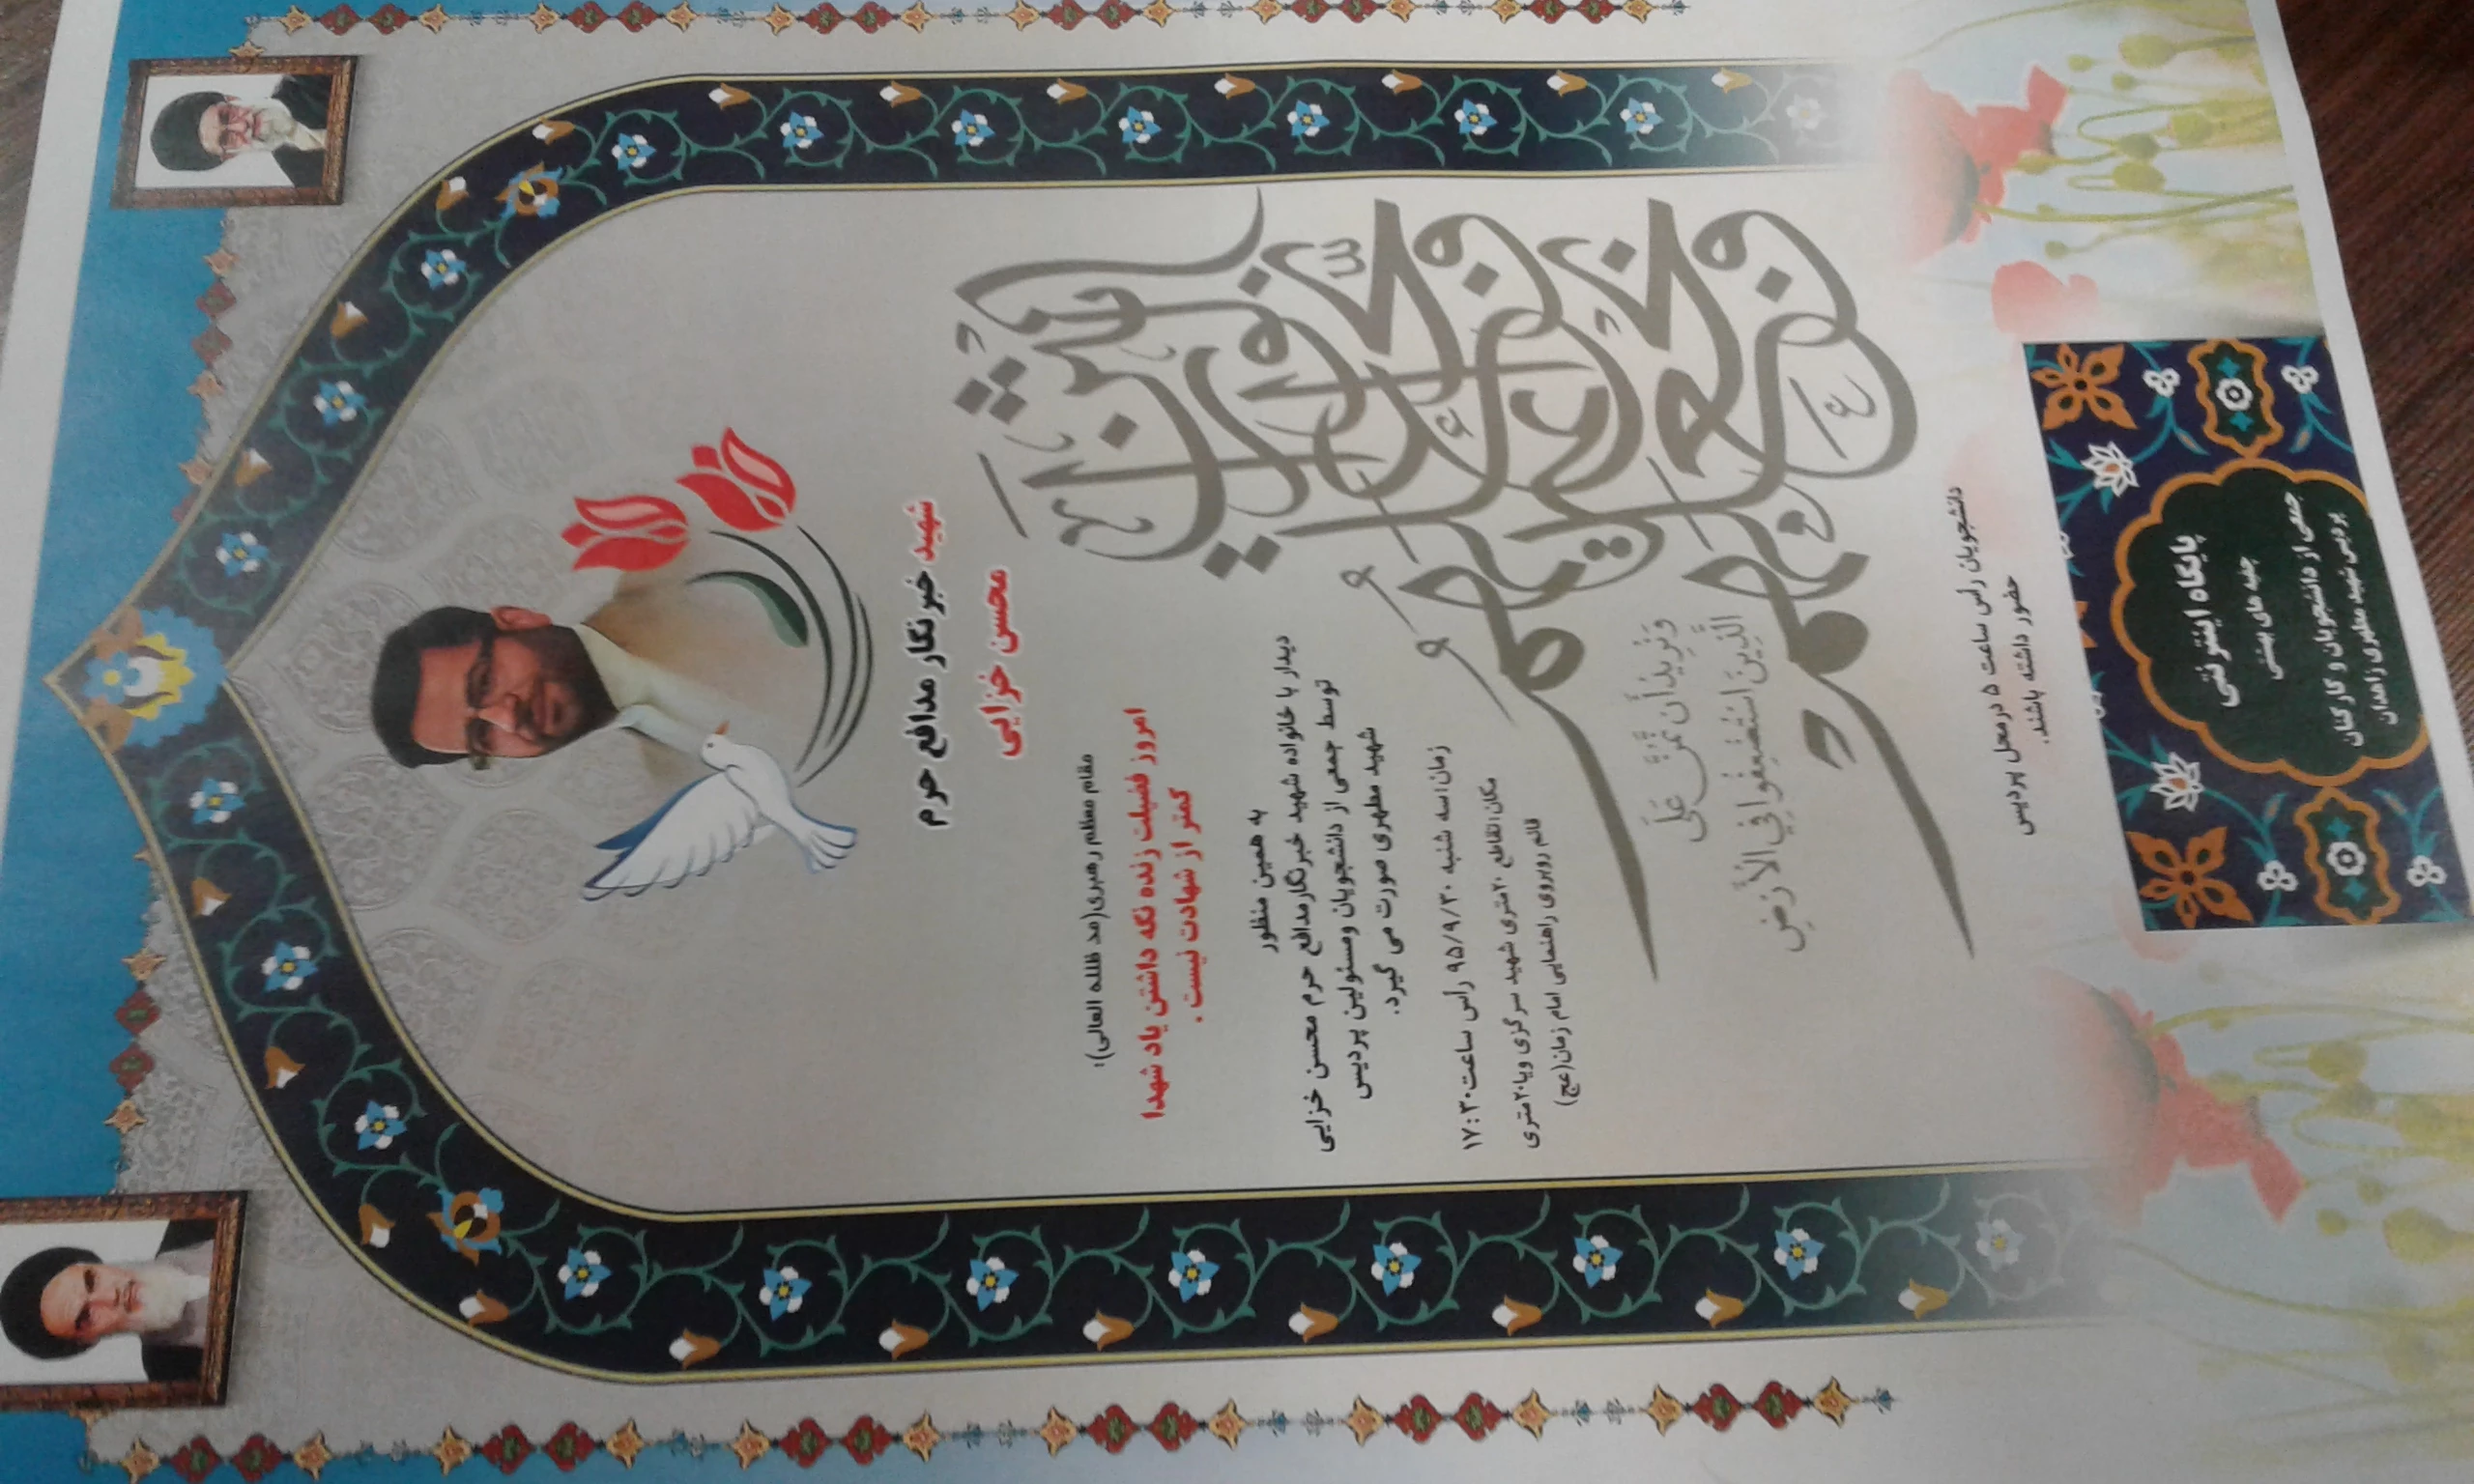 شهید خبرنگار مدافع حرم
محسن خزایی
مقام معظم رهبری(مد ظلله العالی):
امروز فضیلت زنده نگه داشتن یاد شهدا
کمتر از شهادت نیست .
به همین منظور
دیدار با خانواده شهید خبرنگارمدافع حرم محسن خزایی
توسط جمعی از دانشجویان ومسئولین پردیس
شهید مطهری صورت می گیرد.
زمان:سه شنبه ۹۵/۹/۳۰ رأس ساعت۱۷:۳۰
مکان:تقاطع ۲۰متری شهید سرگزی وبا۲۰متری
قائم روبروی راهنمایی امام زمان(عج)
وَنُرِيدُ أَن نَّمُنَّ عَلَى
الَّذِينَ اسْتُضْعِفُوا فِي الْأَرْضِ
دانشجویان رأس ساعت ۵ درمحل پردیس
حضور داشته باشند.
پایگاه اینترنتی
جلبه های بهشتی
جمعی از دانشجویان و کارکنان
پردیس شهید مطهری زاهدان